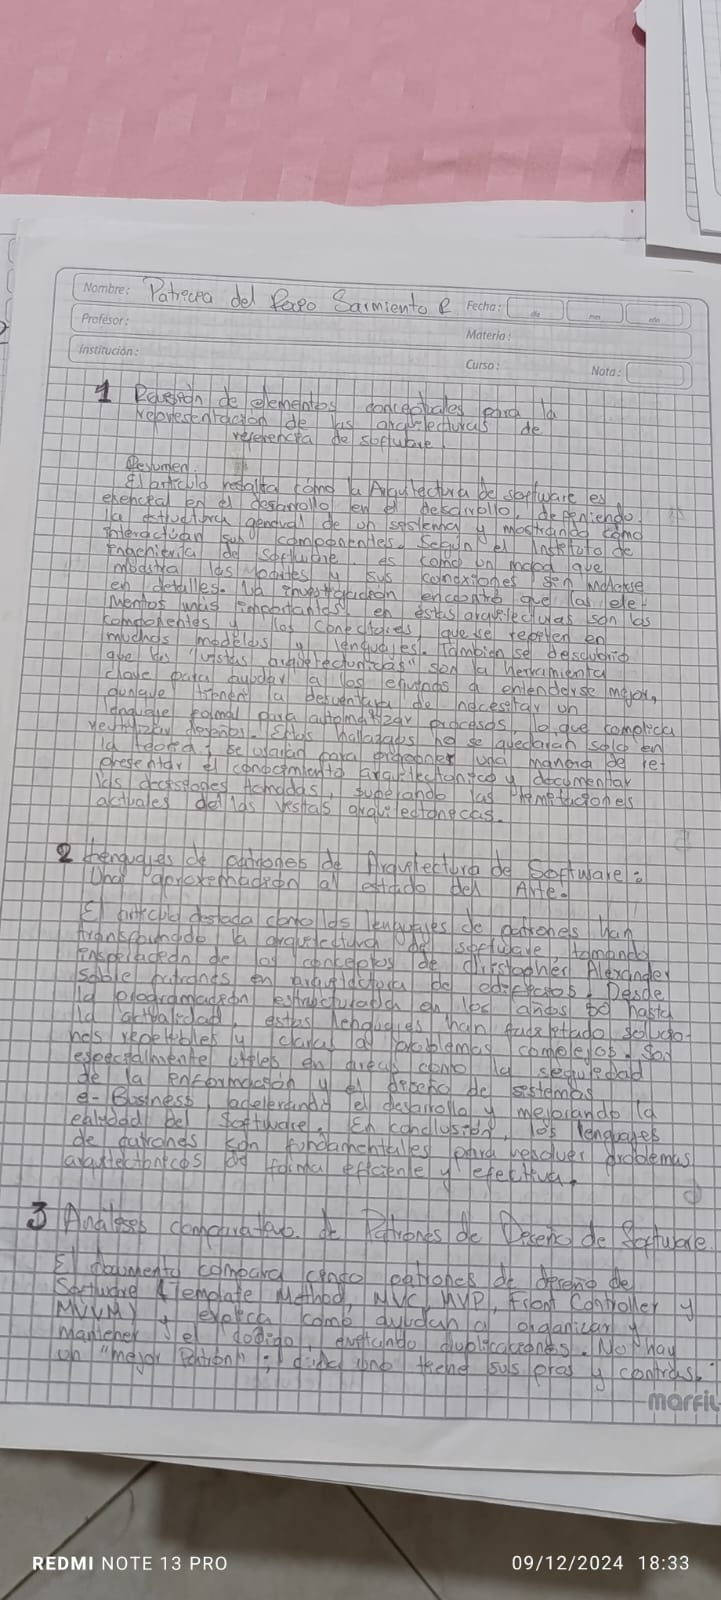 Nombre: Patricia del Sarmiento R Fecha:
Profesor: Materia:
Institución: Curso: Nota:
1 Revisión de elementos conceptuales para la
representación de las arquitecturas de
referencia de software
Resumen.
El articulo resalta como la Arquitectura de software es
esencial en el desarrollo en el desarrollo, definiendo
la estructura general de un sistema y mostrando cómo
interactúan sus componentes. Según el Instituto de
Ingeniería de Software, es como un mapa que
muestra las partes y sus conexiones sin
en detalles. La investigación encontró que los ele-
mentos más importantes en estas arquitecturas son los
componentes y los conectores, que se repiten en
muchos modelos y lenguajes. Tambien se descubrió
que las "vistas arquitectónicas" son la herramienta
clave para ayudar a los equipos a entenderse mejor,
aunque tienen la desventaja de necesitar un
lenguaje formal para automatizar procesos, lo que complica
Estos hallazgos no se quedarán solo en
la teoría; se usarán para proponer una manera de re
presentar el conocimiento arquitectónico y documentar
las decisiones tomadas, superando las limitaciones
actuales de las vistas arquitectonicas.
2 Lenguajes de patrones de Arquitectura de Software:
Una aproximación al estado del Arte.
El articulo destaca como los lenguajes de patrones han
transformado la arquitectura de software, tomando
inspiración de los conceptos de Christopher Alexander
sobre patrones en arquitectura de edificios. Desde
la programación estructurada en los años hasta
la actualidad, estos lenguajes han facilitado solucio-
nes repetibles y claras a problemas complejos. Son
especialmente útiles en áreas como la seguridad
de la información y el diseño de sistemas
e-Business, acelerando el desarrollo y mejorando la
calidad del software. En conclusión, los lenguajes
de patrones son fundamentales para resolver problemas
arquitectónicos de forma eficiente y efectiva.
3 Análisis comparativo de Patrones de Diseño de Software.
El documento compara cinco patrones de diseño de
Software (Template Method, MVC, MVP, Front Controller y
MVVM) y explica como ayudan a organizar y
mantener el código, evitando duplicaciones. No hay
un "mejor Patrón"; cada uno tiene sus pros y contras.
marfil
REDMI NOTE 13 PRO 09/12/2024 18:33